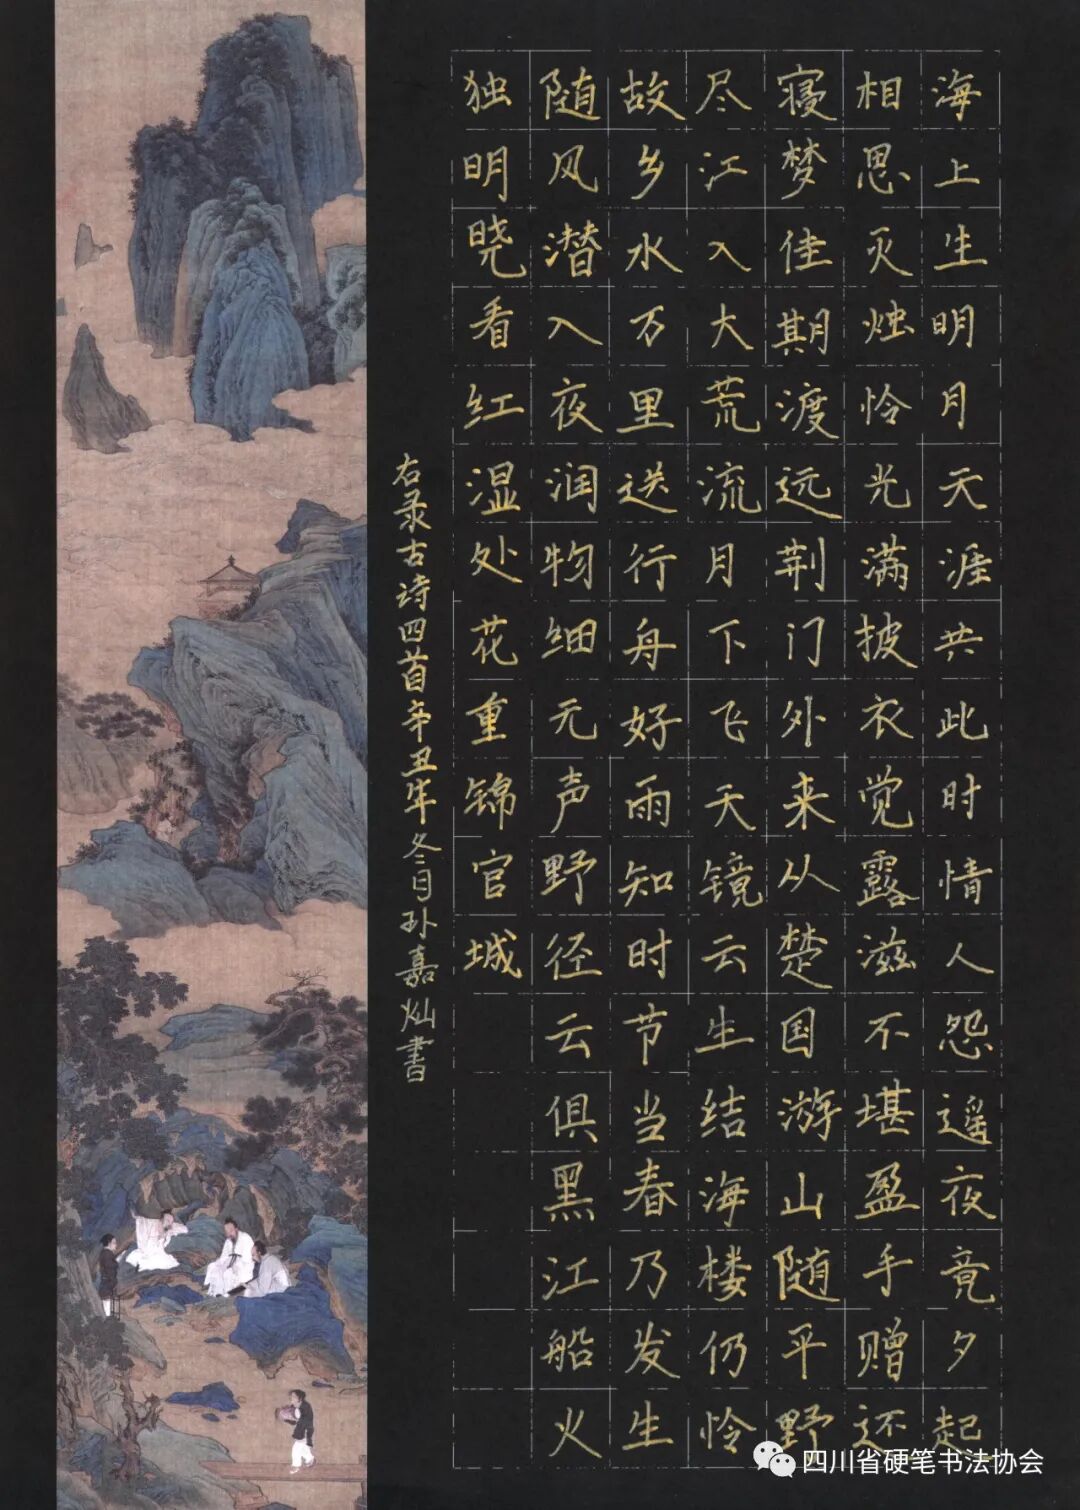 海上生明月天涯共此时情人怨遥夜竟夕起
相思灭烛怜光满披衣觉露滋不堪盈手赠还
寝梦佳期渡远荆门外来从楚国游山随平野
尽江入大荒流月下飞天镜云生结海楼仍怜
故乡水万里送行舟好雨知时节当春乃发生
随风潜入夜润物细无声野径云俱黑江船火
独明晓看红湿处花重锦官城
右录古诗四首辛丑年冬月孙嘉灿書
四川省硬笔书法协会